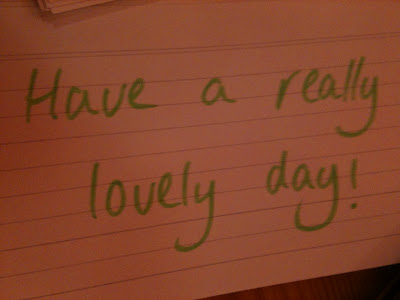 Have a really
lovely day!